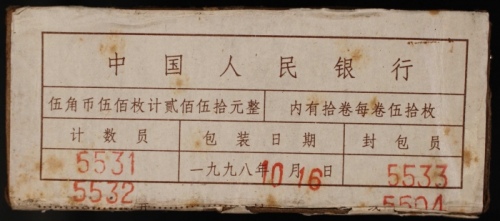 中国人民银行
伍角币伍佰枚计贰佰伍拾元整 内有拾卷每卷伍拾枚
计数员 包装日期 封包员
5531 一九九八年10月16日 5533
5532 5504